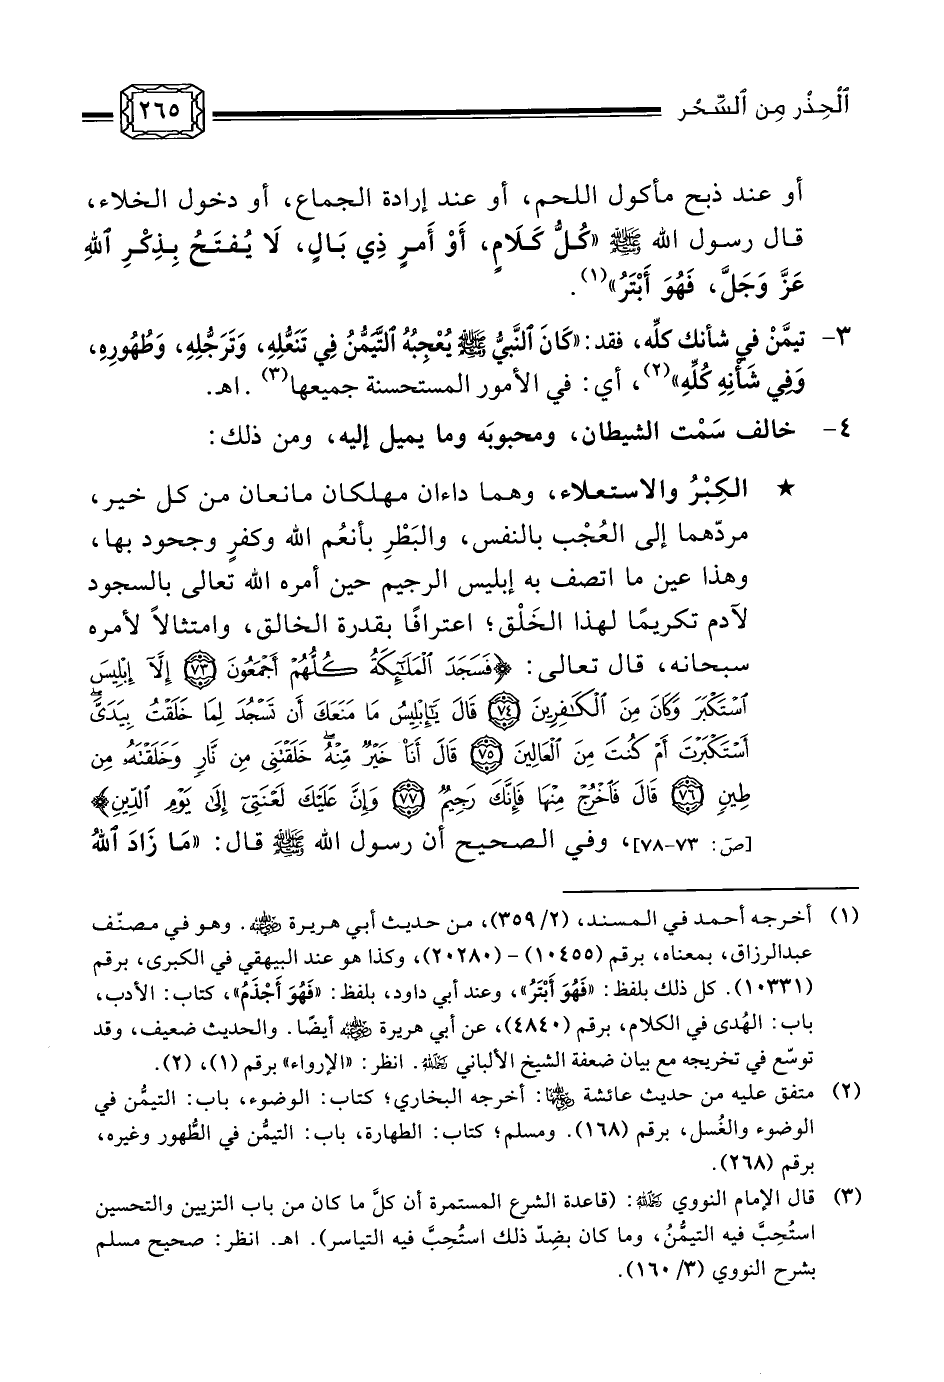 الْحِذْر مِن السِّحْر
٢٦٥
أو عند ذبح مأكول اللحم، أو عند إرادة الجماع، أو دخول الخلاء،
قال رسول الله ﷺ «كُلُّ كَلَامٍ، أَوْ أَمرٍ ذِي بَالٍ، لَا يُفتَحُ بِذِكْرِ اللهِ
عَزَّ وَجَلَّ، فَهُوَ أَبْتَرُ»(١).
٣- تيمَّنْ في شأنك كلِّه، فقد: «كَانَ النَّبيُّ ﷺ يُعْجِبُهُ التَّيَمُّنُ فِي تَنَعُّلِهِ، وَتَرَجُّلِهِ، وَطُهُورِهِ،
وَفِي شَأْنِهِ كُلِّهِ»(٢)، أي: في الأمور المستحسنة جميعها(٣). اهـ.
٤- خالف سَمْت الشيطان، ومحبوبَه وما يميل إليه، ومن ذلك:
★ الكِبْرُ والاستعلاء، وهما داءان مهلكان مانعان من كل خير،
مردّهما إلى العُجْب بالنفس، والبَطْرِ بأنعُم الله وكفرٍ وجحود بها،
وهذا عين ما اتصف به إبليس الرجيم حين أمره الله تعالى بالسجود
لآدم تكريمًا لهذا الخَلْق؛ اعترافًا بقدرة الخالق، وامتثالاً لأمره
سبحانه، قال تعالى: ﴿فَسَجَدَ الْمَلَٰٓئِكَةُ كُلُّهُمْ أَجْمَعُونَ ٧٣ إِلَّآ إِبْلِيسَ
ٱسْتَكْبَرَ وَكَانَ مِنَ ٱلْكَٰفِرِينَ ٧٤ قَالَ يَٰٓإِبْلِيسُ مَا مَنَعَكَ أَن تَسْجُدَ لِمَا خَلَقْتُ بِيَدَىَّۖ
أَسْتَكْبَرْتَ أَمْ كُنتَ مِنَ ٱلْعَالِينَ ٧٥ قَالَ أَنَا۠ خَيْرٌ مِّنْهُۖ خَلَقْتَنِى مِن نَّارٍ وَخَلَقْتَهُۥ مِن
طِينٍ ٧٦ قَالَ فَٱخْرُجْ مِنْهَا فَإِنَّكَ رَجِيمٌ ٧٧ وَإِنَّ عَلَيْكَ لَعْنَتِىٓ إِلَىٰ يَوْمِ ٱلدِّينِ﴾
[صٓ: ٧٣-٧٨]، وفي الصحيح أن رسول الله ﷺ قال: «مَا زَادَ اللهُ
(١) أخرجه أحمد في المسند، (٢/ ٣٥٩)، من حديث أبي هريرة رضي الله عنه. وهو في مصنّف
عبدالرزاق، بمعناه، برقم (١٠٤٥٥) - (٢٠٢٨٠)، وكذا هو عند البيهقي في الكبرى، برقم
(١٠٣٣١). كل ذلك بلفظ: «فَهُوَ أَبْتَرُ»، وعند أبي داود، بلفظ: «فَهُوَ أَجْذَمُ»، كتاب: الأدب،
باب: الهُدى في الكلام، برقم (٤٨٤٠)، عن أبي هريرة رضي الله عنه أيضًا. والحديث ضعيف، وقد
توسّع في تخريجه مع بيان ضعفة الشيخ الألباني رحمه الله. انظر: «الإرواء» برقم (١)، (٢).
(٢) متفق عليه من حديث عائشة رضي الله عنها: أخرجه البخاري؛ كتاب: الوضوء، باب: التيمُّن في
الوضوء والغُسل، برقم (١٦٨). ومسلم؛ كتاب: الطهارة، باب: التيمُّن في الطُّهور وغيره،
برقم (٢٦٨).
(٣) قال الإمام النووي رحمه الله: (قاعدة الشرع المستمرة أن كلَّ ما كان من باب التزيين والتحسين
استُحِبَّ فيه التيمُّنُ، وما كان بضِدّ ذلك استُحِبَّ فيه التياسر). اهـ. انظر: صحيح مسلم
بشرح النووي (٣/ ١٦٠).